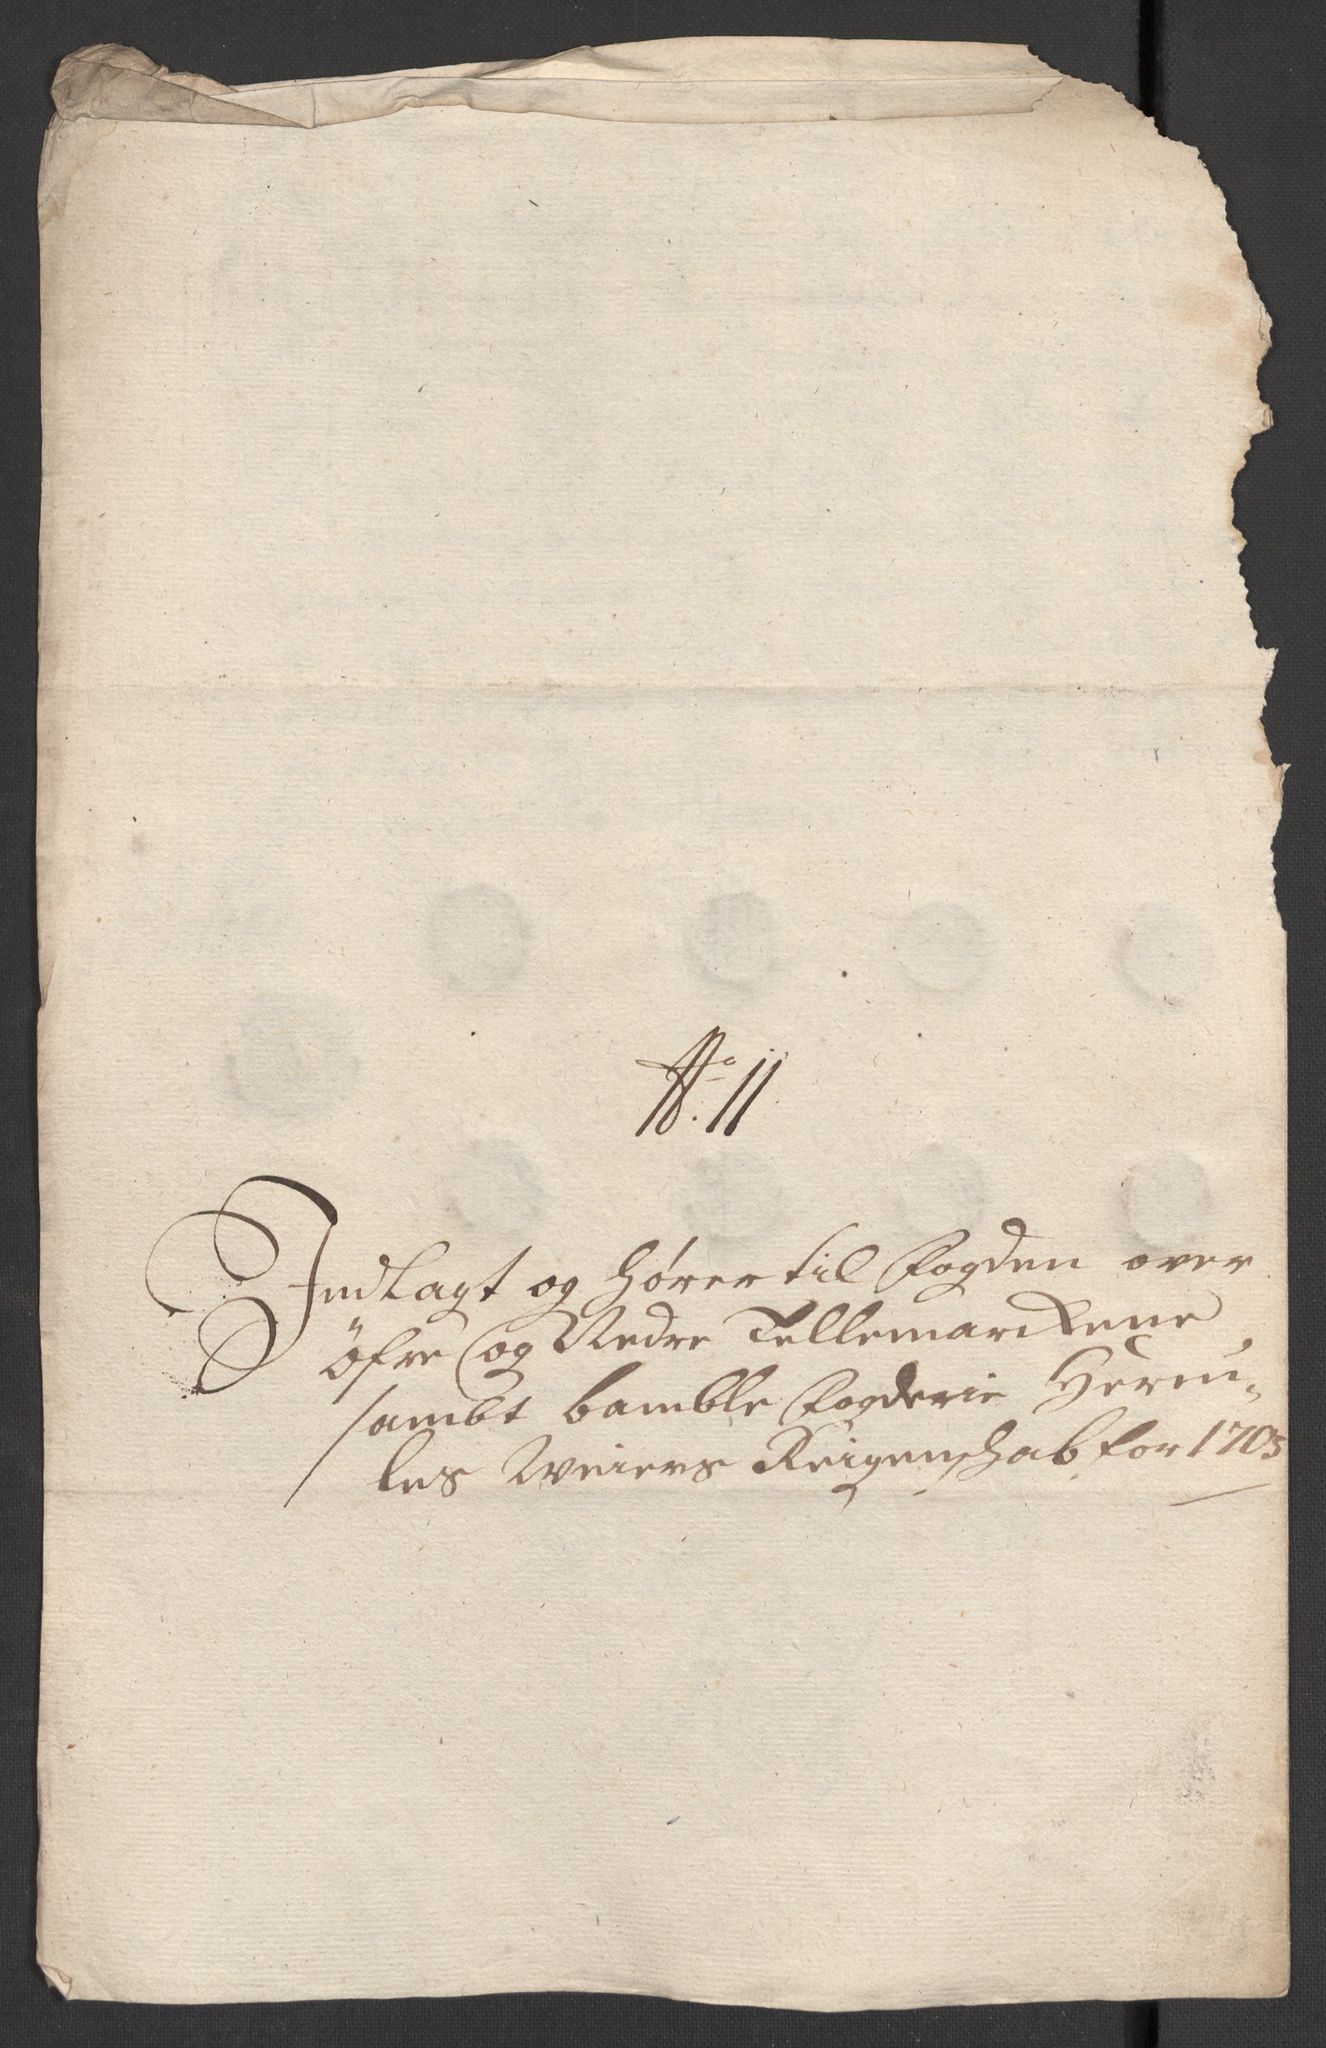 No. 11
Indlagt og hører til fogden over
öfre og Nedre Tellemarckene
sambt bamble fogderie Hercu-
les Weiers Reigenschab for 1705